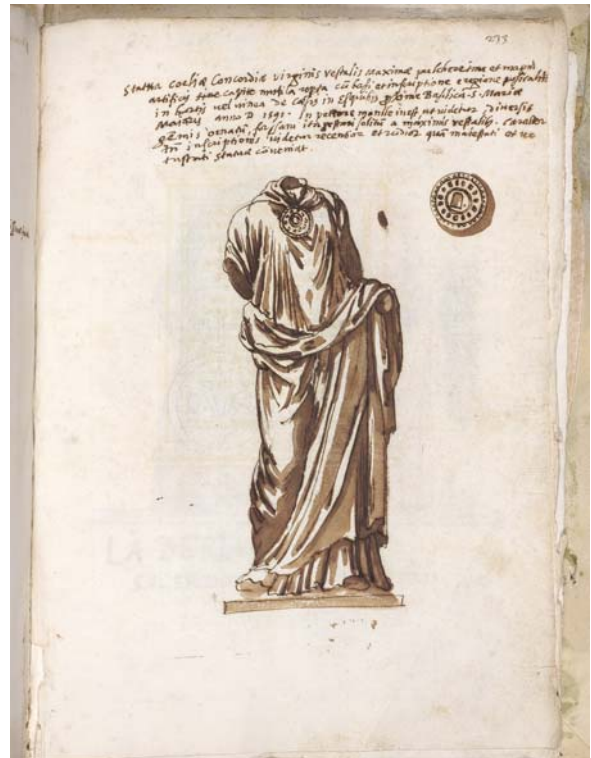 233
Statua Coeliæ Concordiæ virginis vestalis Maximæ pulcherrimæ et magni
artificij sine capite mutila reperta cũ basi et inscriptione e regione
in hortis vel vinea de in Esquilijs proxime Basilicã S. Mariæ
Maioris anno D 1591. In pectore monile inest ut videtur diversis
gẽmis ornatũ, forsam ita gestari solitũ a maximis vestalibus. Caracter
inscriptionis videtur recentior et rudior quã maiestati et ve
tustati statuæ cõveniat.